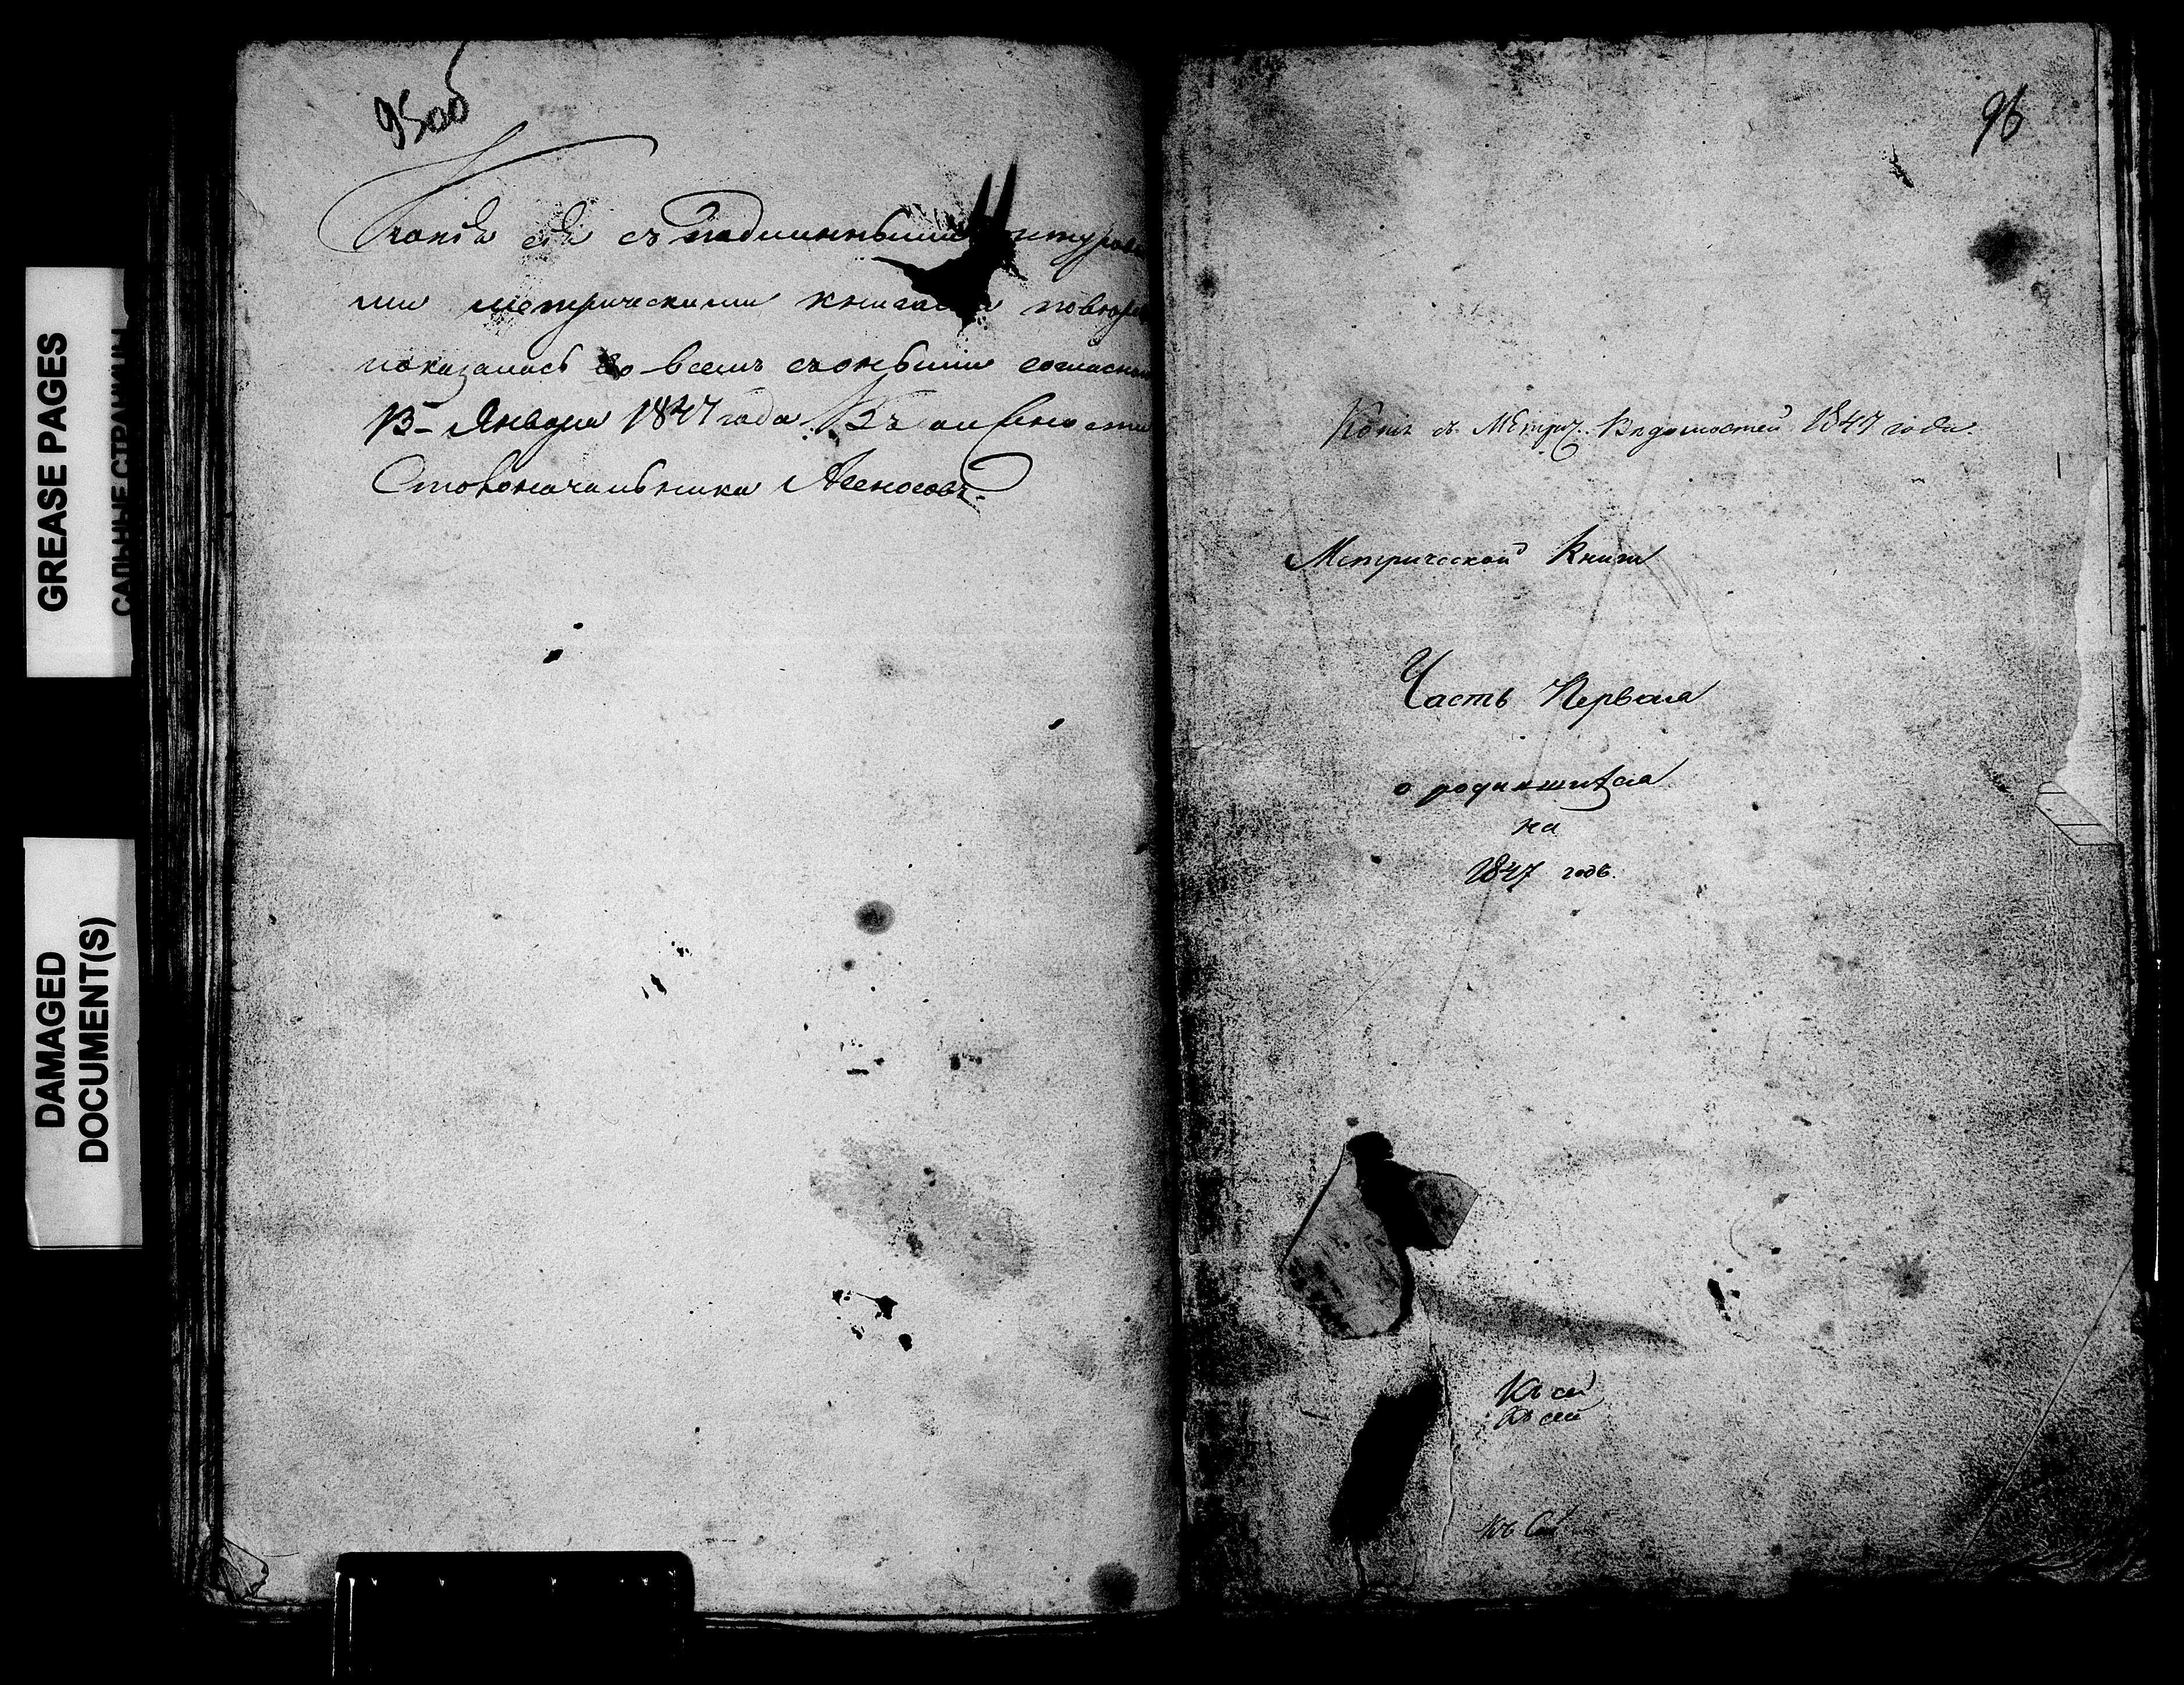 GREASE PAGES
САЛЬНЫЕ СТРАНИЦЫ
DAMAGED
DOCUMENT(S)
95об
Копія сія съ подлинными
ми метрическими книгами
показалась во всемъ съ оными согласною
13 Января 1847 года. Въ
Столоначальника
96
Копія съ Метрич. Вѣдомостей 1847 года.
Метрической Книги
Часть Первая
о родившихся
на
1847 годъ.
Къ сей
Къ сей
Къ Сей